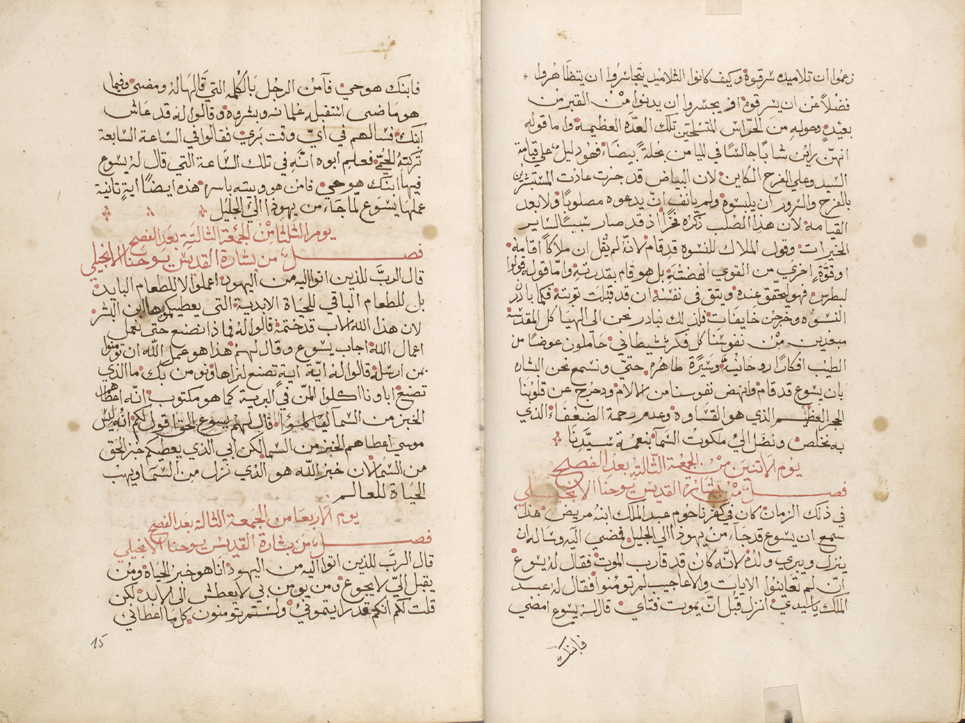 زعموا ان تلاميذه سرقوه وكيف كانوا التلاميذ يتجاسروا ان يتظاهروا
فضلاً عن ان يسرقوه او يجسروا ان يدنوا من القبر من
بعيد وحوله من الحراس المتسلحين تلك العدة العظيمة واما قوله
انهن راين شاباً جالساً في الميامن بحلة بيضا فهو دليل على قيامة
السيد وعلى الفرح الكاين لان البياض قد جرت عادت المستبشرين
بالفرح والسرور ان يلبسوه ولم يانف ان يدعوه مصلوباً ولا بعد
القيامة لان هذا الصلب ذكره فخراً اذ قد صار سبباً لساير
الخيرات وقول الملاك للنسوه قد قام لانه لم يقل ان ملاكاً اقامه
او قوة اخري من القوي بل هو قام بقدرته واما قوله قولوا
لبطرس فهو ليحقق عنده ويثق في نفسه ان قد قبلت توبته فكما بادرن
النسوه وخرجن خايفات فلذلك نبادر نحن الى الهيا كل المقدسة
مبعدين من نفوسنا كل فكر شيطاني حاملون عوضاً من
الطيب افكاراً روحانية وسيرة طاهرة حتى ونسمع نحن الشاره
بان يسوع قد قام فانهض نفوسنا من الالام ودحرج عن قلوبنا
الحجر العظيم الذي هو القساوه وعدم رحمة الضعفا الذي
به نخلص ونصل الى ملكوت السما بنعمة سيدنا
يوم الاتنين من الجمعة التالتة بعد الفصح
فصل من بشارة القديس يوحنا الانجيلي
في ذلك الزمان كان في كفرناحوم عبد الملك ابنه مريض هذا
سمع ان يسوع قد جا من يهودا الى الجليل فمضى اليه وساله ان
ينزل ويبري ولده لانه كان قد قارب الموت فقال له يسوع
ان لم تعاينوا الايات والاعاجيب لم تومنوا فقال له عبد
الملك يا سيدي انزل قبل ان يموت فتاي قال له يسوع امضي
فابنك
فابنك هو حي فامن الرجل بالكلمه التي قالها له ومضى وفيما
هو ماضى استقبله غلمانه وبشروه وقالوا له قد عاش
ابنك فسالهم في اي وقت بري فقالوا في الساعة السابعة
تركته الحمى فعلم ابوه انه في تلك الساعة التي قال له يسوع
فيها ابنك هو حي فامن هو وبيته باسره هذه ايضاً اية تانية
عملها يسوع لما جا من يهودا الى الجليل
يوم الثلثا من الجمعة التالتة بعد الفصح
فصل من بشارة القديس يوحنا الانجيلي
قال الرب للذين اتوا اليه من اليهود اعملوا لا للطعام البايد
بل للطعام الباقي للحياة الابدية التي يعطيكموها ابن البشر
لان هذا الله الاب قد ختمه قالوا له فماذا نصنع حتى نعمل
اعمال الله اجاب يسوع وقال لهم هذا هو عمل الله ان تومنوا
بمن ارسله قالوا له اية اية تصنع لنراها ونومن بك ما الذي
تصنع اباونا اكلوا المن في البرية كما هو مكتوب انه اعطاهم
الخبز من السما لياكلوا قال لهم يسوع الحق اقول لكم انه ليس
موسى اعطاهم الخبز من السما لكن ابي الذي يعطيكم خبز الحق
من السما لان خبز الله هو الذي نزل من السما ويهب
الحياة للعالم
يوم الاربعا من الجمعة الثالثة بعد الفصح
فصل من بشارة القديس يوحنا الانجيلي
قال الرب للذين اتوا اليه من اليهود انا هو خبز الحياه ومن
يقبل الي لا يجوع ومن يومن بي لا يعطش الى الابد لكن
قلت لكم انكم قد رايتموني ولستم تومنون كل ما اعطاني
15